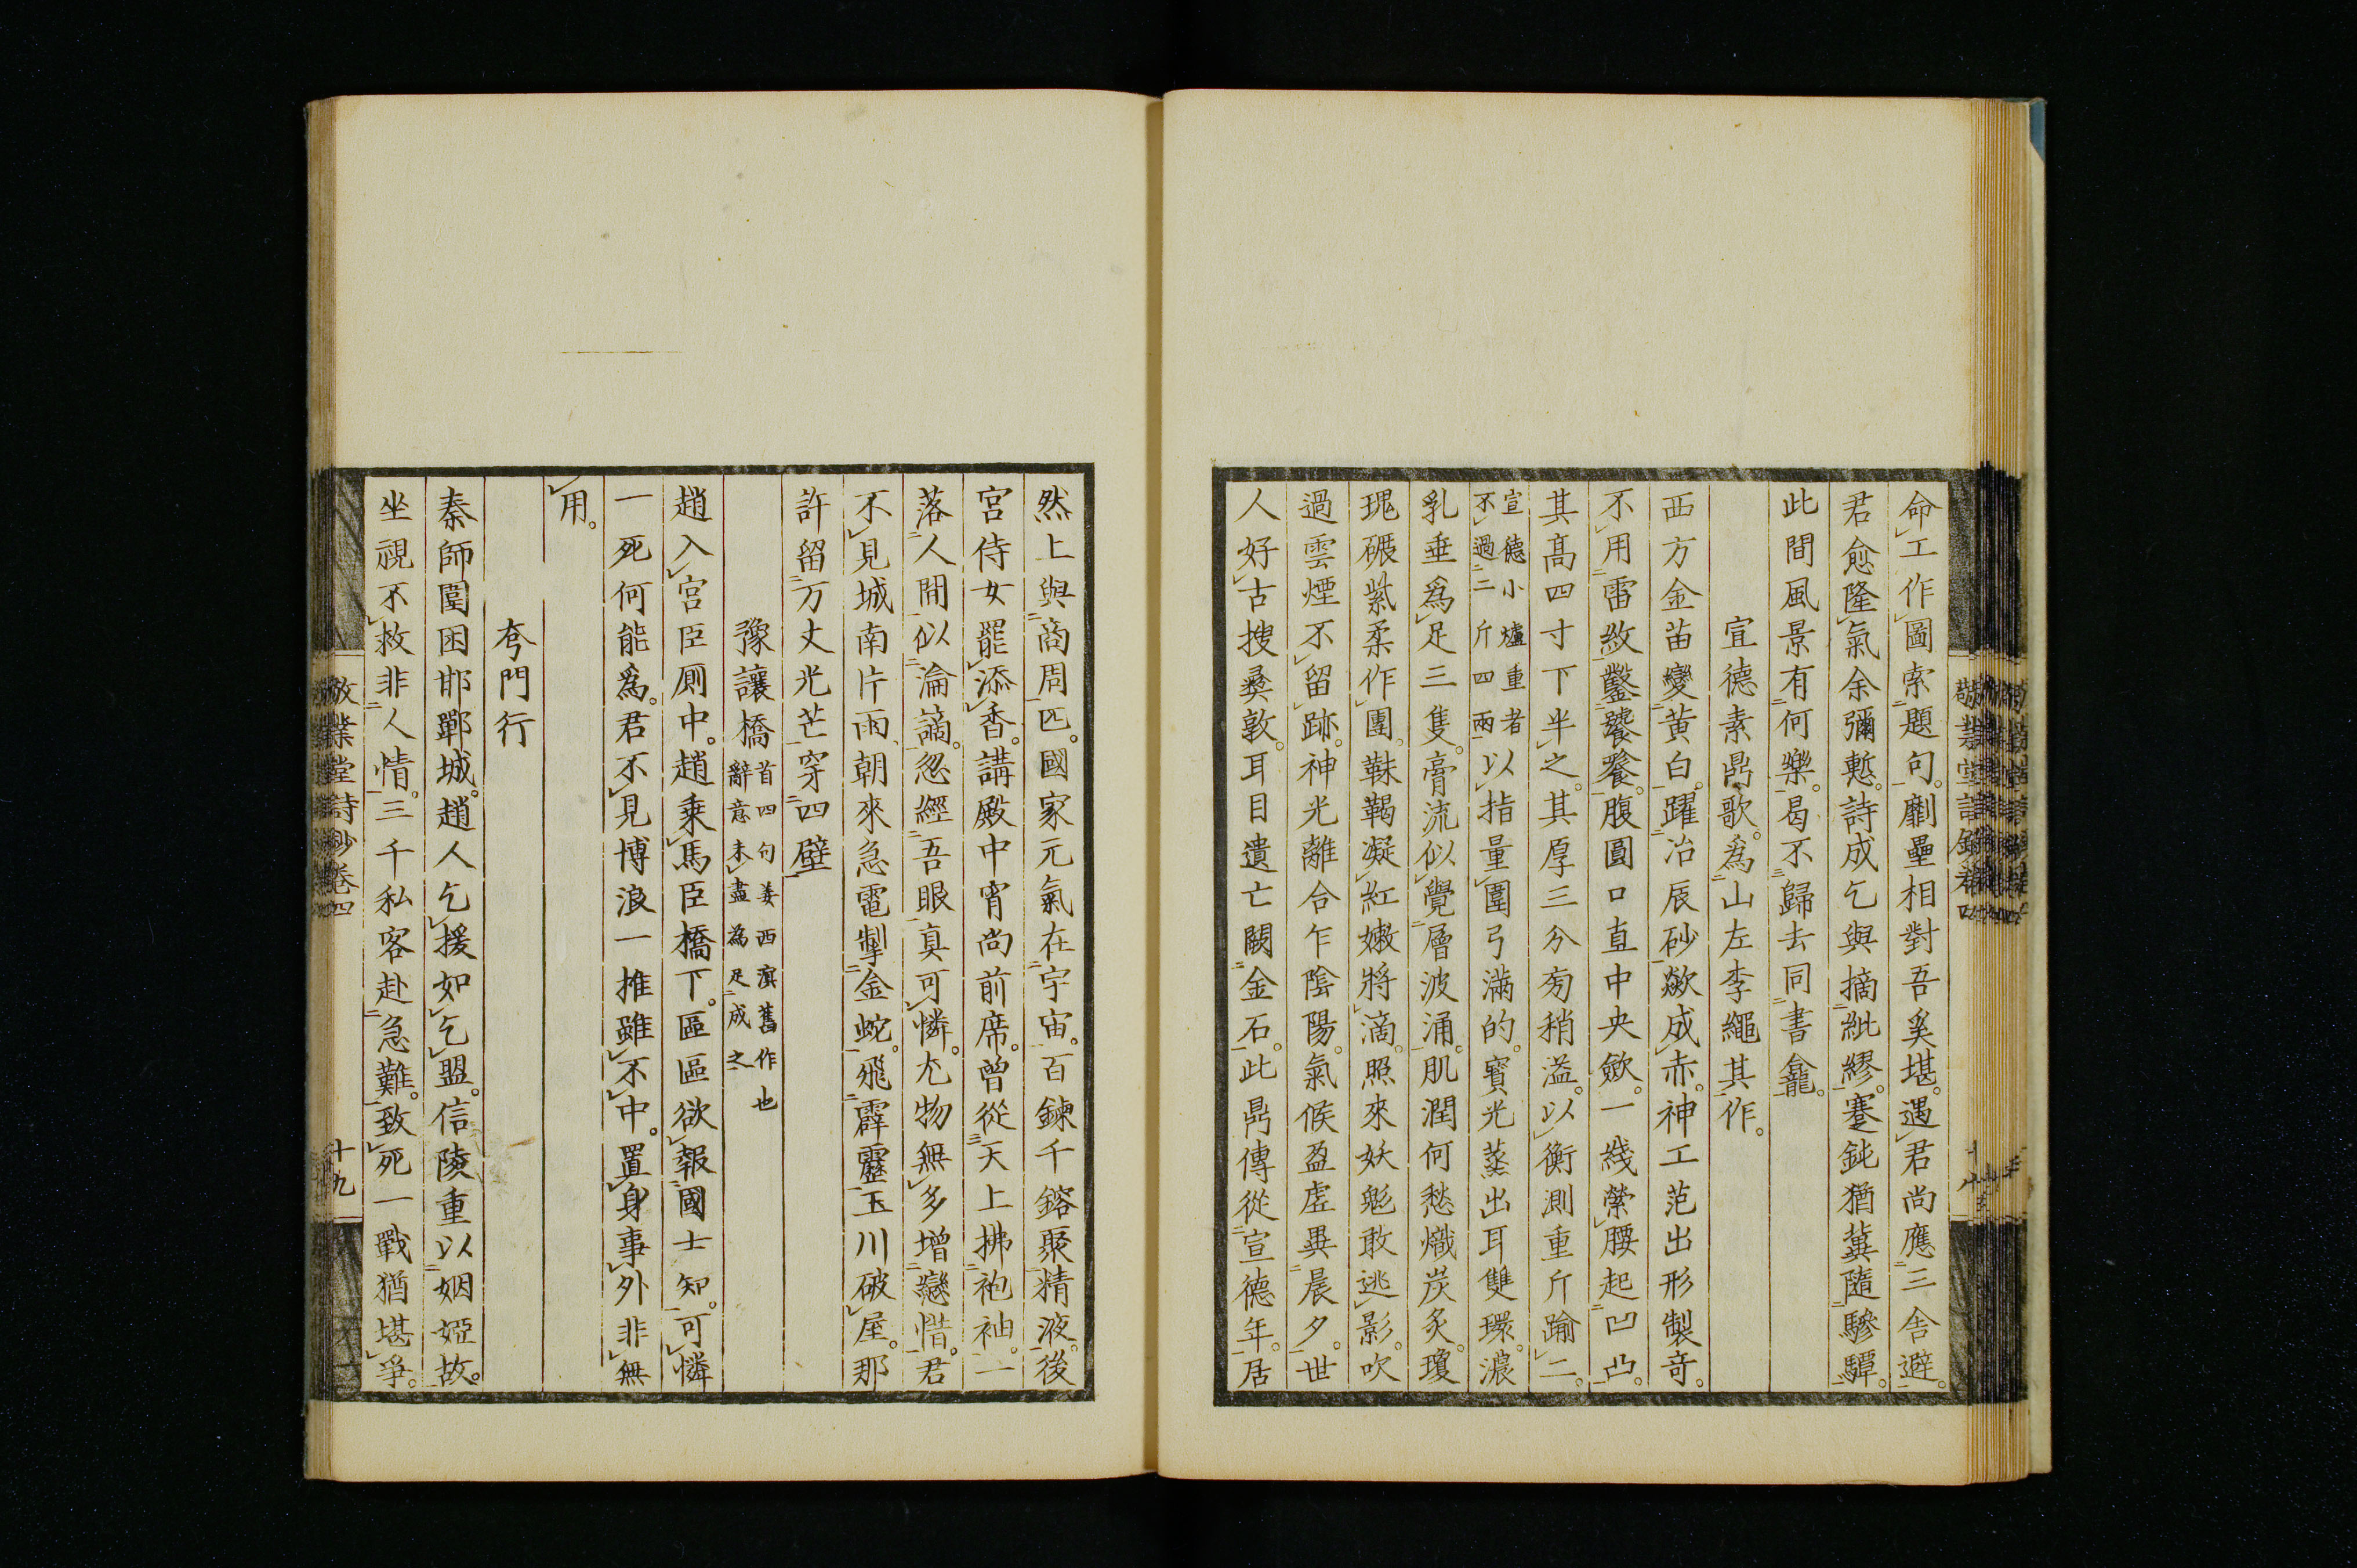 命工作圖索題句。劘壘相對吾奚堪。遇君尚應三舍避。
君愈隆氣余彌慙。詩成乞與摘紕繆。蹇鈍猶冀隨驂驔。
此間風景有何樂。曷不歸去同書龕。
宣德素鼎歌。爲山左李繩其作。
西方金苗變黃白。躍冶辰砂歘成赤。神工范出形製奇。
不用雷紋鑿饕餮。腹圓口直中央斂。一綫縈腰起凹凸。
其高四寸下半之。其厚三分旁稍溢。以衡測重斤踰二。
宣德小爐重者不過二斤四兩以指量圍弓滿的。寶光蒸出耳雙環。濃
乳垂爲足三隻。膏流似覺層波涌。肌潤何愁熾炭炙。瓊
瑰碾紫柔作團。靺鞨凝紅嫩將滴。照來妖魅敢逃影。吹
過雲煙不留跡。神光離合乍陰陽。氣候盈虛異晨夕。世
人好古搜彝敦。耳目遺亡闕金石。此鼎傳從宣德年。居
然上與商周匹。國家元氣在宇宙。百鍊千鎔聚精液。後
宮侍女罷添香。講殿中宵尚前席。曾從天上拂袍袖。一
落人間似淪謫。忽經吾眼真可憐。尤物無多增戀惜。君
不見城南片雨朝來急電掣金蛇。飛霹靂玉川破屋。那
許留万丈光芒穿四壁
豫讓橋首四句姜西溟舊作也辭意未盡為足成之
趙入宮臣厠中。趙乘馬臣橋下。區區欲報國士知。可憐
一死何能爲。君不見博浪一推雖不中。置身事外非無
用。
夸門行
秦師圍困邯鄲城。趙人乞援如乞盟。信陵重以姻婭故。
坐視不救非人情。三千私客赴急難。致死一戰猶堪爭。
敬業堂詩鈔卷四
十九